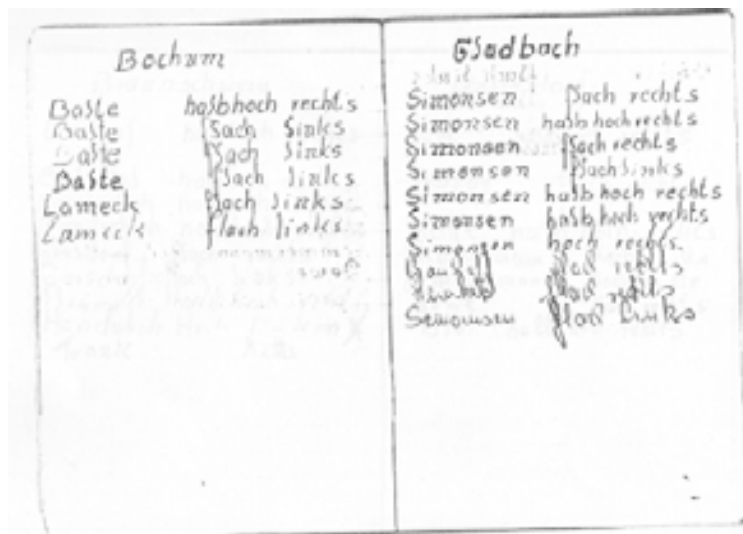 Bochum
Baste halbhoch rechts
Baste flach links
Baste flach links
Baste flach links
Lameck flach links
Lameck flach links
Gladbach
Simonsen flach rechts
Simonsen halbhoch rechts
Simonsen flach rechts
Simonsen flach links
Simonsen halbhoch rechts
Simonsen halbhoch rechts
Simonsen hoch rechts
flach rechts
flach rechts
Simonsen flach links